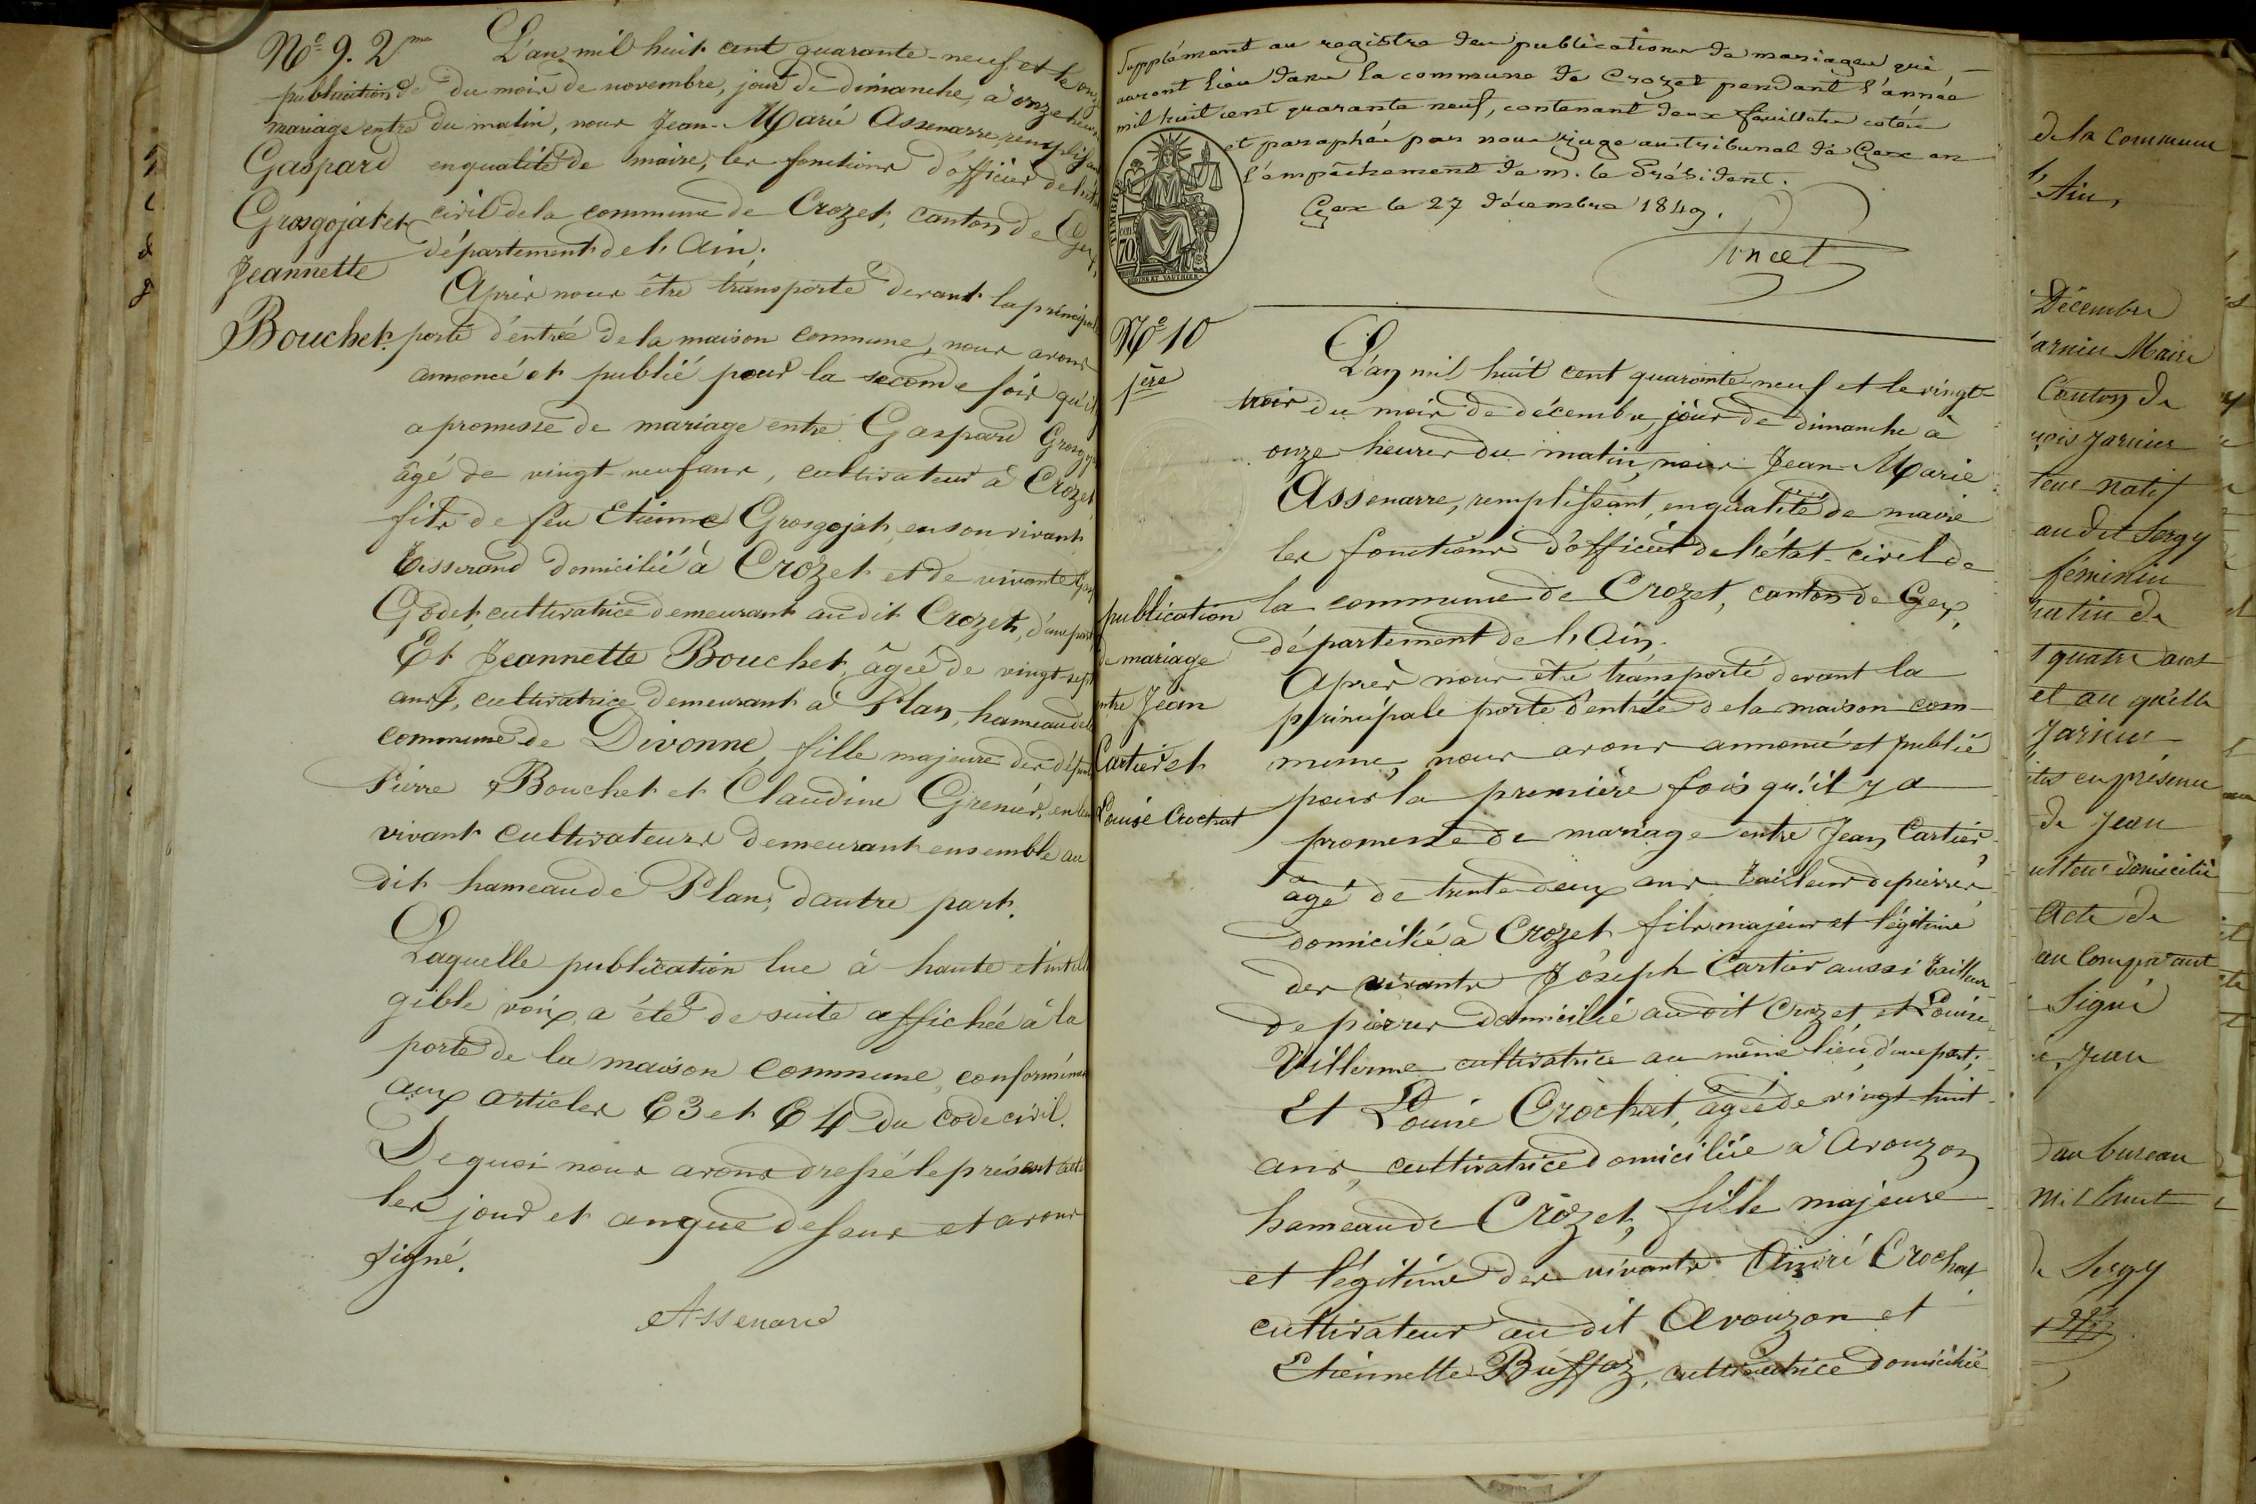 No 9. 2me
publication de
mariage entre
Gaspard
Grosgojat et
Jeannette
Bouchet.
L'an mil huit cent quarante-neuf et le onze
du mois de novembre, jour de dimanche, à onze heures
du matin, nous Jean-Marie Assenarre, remplissant
en qualité de maire, les fonctions d'officier de l'état
civil de la commune de Crozet, canton de Gex,
département de l'Ain.
Après nous être transporté devant la principale
porte d'entrée de la maison commune, nous avons
annoncé et publié pour la seconde fois qu'il
a promesse de mariage entre Gaspard Grosgojat
âgé de vingt-neuf ans, cultivateur à Crozet
fils de feu Etienne Grosgojat, en son vivant
tisserand domicilié à Crozet et de vivante
Godet, cultivatrice demeurant audit Crozet, d'une part
Et Jeannette Bouchet, âgée de vingt-sept
ans, cultivatrice demeurant à Plan, hameau de la
commune de Divonne, fille majeure des défunts
Pierre Bouchet et Claudine Grenier, en leur
vivant cultivateurs demeurant ensemble au
dit hameau de Plan, d'autre part.
Laquelle publication lue à haute et intelli
gible voix, a été de suite affichée à la
porte de la maison commune, conformément
aux articles 63 et 64 du code civil.
De quoi nous avons dressé le présent acte
les jour et an que dessus et avons
signé.
Assenarre
Supplément au registre des publications de mariages qui
auront lieu dans la commune de Crozet pendant l'année
mil huit cent quarante neuf, contenant deux feuillets cotés
et paraphés par nous juge au tribunal de Gex en
l'empêchement de m. le Président.
Gex le 27 décembre 1849.
Poncet
TIMBRE
70
No 10
1ère
publication
de mariage
entre Jean
Cartier et
Louise Crochat
L'an mil huit cent quarante-neuf et le vingt-
trois du mois de décembre, jour de dimanche à
onze heures du matin, nous Jean-Marie
Assenarre, remplissant, en qualité de maire
les fonctions d'officier de l'état-civil de
la commune de Crozet, canton de Gex,
département de l'Ain.
Après nous être transporté devant la
principale porte d'entrée de la maison com-
mune, nous avons annoncé et publié
pour la première fois qu'il y a
promesse de mariage entre Jean Cartier,
âgé de trente-deux ans tailleur de pierres,
domicilié à Crozet, fils majeur et légitime
des vivants Joseph Cartier aussi tailleur
de pierres domicilié audit Crozet et Louise
Villerme cultivatrice au même lieu, d'une part;
Et Louise Crochat, âgée de vingt-huit
ans, cultivatrice domiciliée à Avouzon
hameau de Crozet, fille majeure
et légitime des vivants André Crochat
cultivateur audit Avouzon et
Etiennette Buffoz, cultivatrice domiciliée
de la commune
l'Ain,
Décembre
Maire
Canton de
natif
audit Sergy
féminin
matin de
quatre ans
et au quelle
en présence
de Jean
domicilié
Acte de
au Comparant
Signé
Jean
au bureau
Mil huit
de Sergy